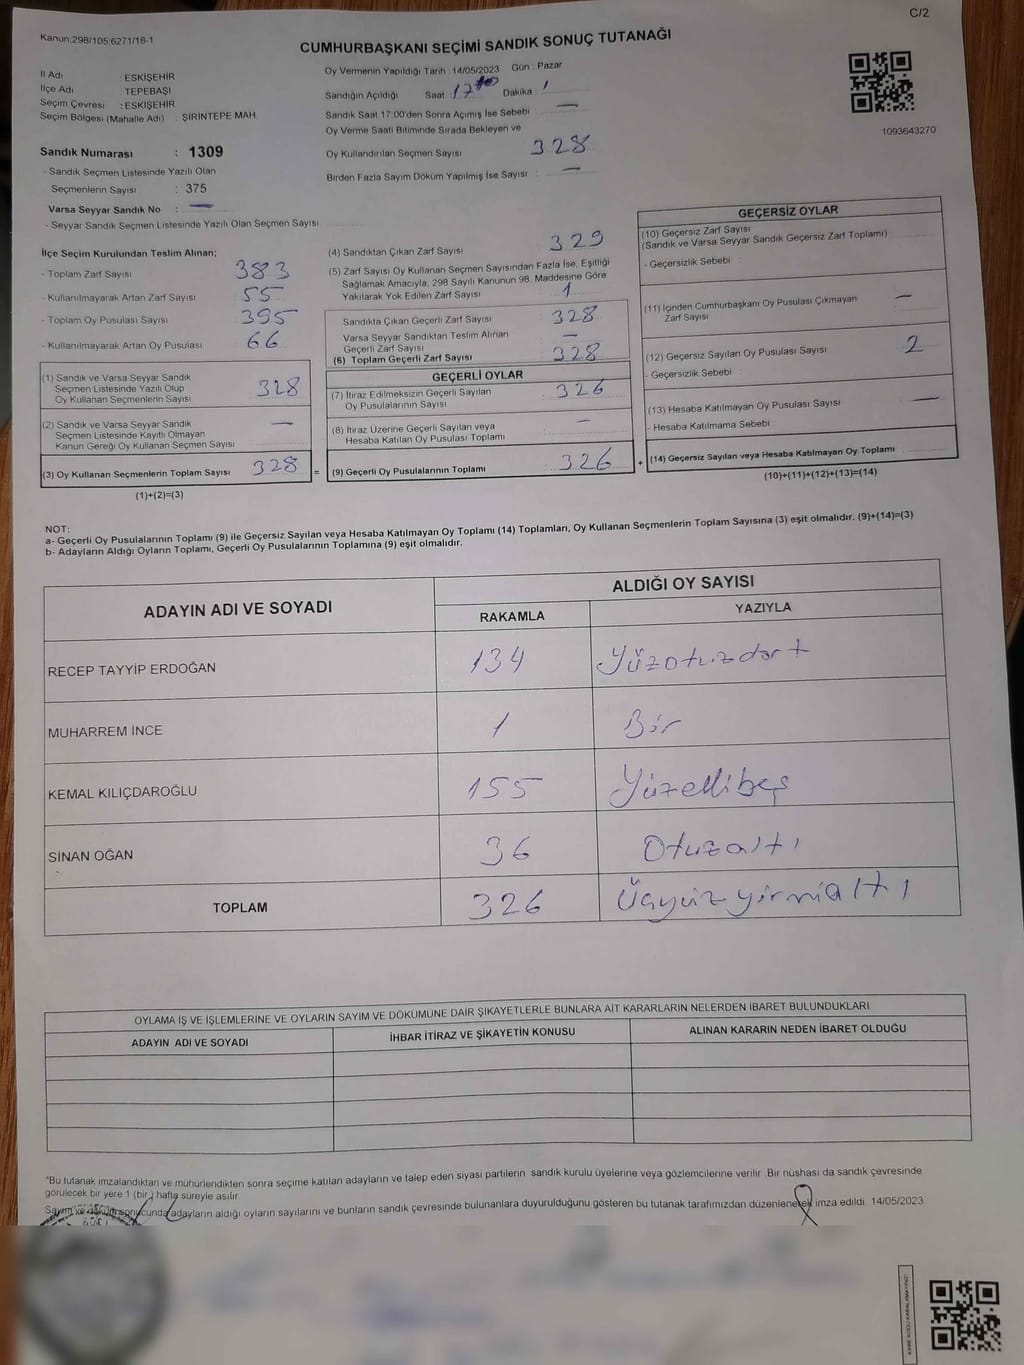 C/2
Kanun:298/105 6271/18-1
CUMHURBAŞKANI SEÇİMİ SANDIK SONUÇ TUTANAĞI
İl Adı : ESKİŞEHİR
İlçe Adı : TEPEBAŞI
Seçim Çevresi : ESKİŞEHİR
Seçim Bölgesi (Mahalle Adı) : ŞİRİNTEPE MAH
Sandık Numarası : 1309
- Sandık Seçmen Listesinde Yazılı Olan
Seçmenlerin Sayısı : 375
Varsa Seyyar Sandık No : —
- Seyyar Sandık Seçmen Listesinde Yazılı Olan Seçmen Sayısı
Oy Vermenin Yapıldığı Tarih : 14/05/2023 Gün : Pazar
Sandığın Açıldığı Saat 17 Dakika
Sandık Saat 17:00'den Sonra Açımış İse Sebebi : —
Oy Verme Saati Bitiminde Sırada Bekleyen ve
Oy Kullandırılan Seçmen Sayısı 328
Birden Fazla Sayım Döküm Yapılmış İse Sayısı : —
1093643270
İlçe Seçim Kurulundan Teslim Alınan;
- Toplam Zarf Sayısı : 383
- Kullanılmayarak Artan Zarf Sayısı : 55
- Toplam Oy Pusulası Sayısı : 395
- Kullanılmayarak Artan Oy Pusulası : 66
(1) Sandık ve Varsa Seyyar Sandık
Seçmen Listesinde Yazılı Olup
Oy Kullanan Seçmenlerin Sayısı : 328
(2) Sandık ve Varsa Seyyar Sandık
Seçmen Listesinde Kayıtlı Olmayan
Kanun Gereği Oy Kullanan Seçmen Sayısı : —
(3) Oy Kullanan Seçmenlerin Toplam Sayısı : 328 =
(1)+(2)=(3)
(4) Sandıktan Çıkan Zarf Sayısı : 329
(5) Zarf Sayısı Oy Kullanan Seçmen Sayısından Fazla İse, Eşitliği
Sağlamak Amacıyla, 298 Sayılı Kanunun 98. Maddesine Göre
Yakılarak Yok Edilen Zarf Sayısı : 1
Sandıkta Çıkan Geçerli Zarf Sayısı : 328
Varsa Seyyar Sandıktan Teslim Alınan
Geçerli Zarf Sayısı : —
(6) Toplam Geçerli Zarf Sayısı : 328
GEÇERLİ OYLAR
(7) İtiraz Edilmeksizin Geçerli Sayılan
Oy Pusulalarının Sayısı : 326
(8) İtiraz Üzerine Geçerli Sayılan veya
Hesaba Katılan Oy Pusulası Toplamı : —
(9) Geçerli Oy Pusulalarının Toplamı : 326 +
GEÇERSİZ OYLAR
(10) Geçersiz Zarf Sayısı
(Sandık ve Varsa Seyyar Sandık Geçersiz Zarf Toplamı)
- Geçersizlik Sebebi :
(11) İçinden Cumhurbaşkanı Oy Pusulası Çıkmayan
Zarf Sayısı —
(12) Geçersiz Sayılan Oy Pusulası Sayısı : 2
- Geçersizlik Sebebi :
(13) Hesaba Katılmayan Oy Pusulası Sayısı : —
- Hesaba Katılmama Sebebi :
(14) Geçersiz Sayılan veya Hesaba Katılmayan Oy Toplamı :
(10)+(11)+(12)+(13)=(14)
NOT:
a- Geçerli Oy Pusulasının Toplamı (9) ile Geçersiz Sayılan veya Hesaba Katılmayan Oy Toplamı (14) Toplamları, Oy Kullanan Seçmenlerin Toplam Sayısına (3) eşit olmalıdır. (9)+(14)=(3)
b- Adayların Aldığı Oyların Toplamı, Geçerli Oy Pusulalarının Toplamına (9) eşit olmalıdır.
ADAYIN ADI VE SOYADI
ALDIĞI OY SAYISI
RAKAMLA YAZIYLA
RECEP TAYYİP ERDOĞAN 134 Yüzotuzdört
MUHARREM İNCE 1 Bir
KEMAL KILIÇDAROĞLU 155 Yüzellibeş
SİNAN OĞAN 36 Otuzaltı
TOPLAM 326 Üçyüzyirmialtı
OYLAMA İŞ VE İŞLEMLERİNE VE OYLARIN SAYIM VE DÖKÜMÜNE DAİR ŞİKAYETLERLE BUNLARA AİT KARARLARIN NELERDEN İBARET BULUNDUKLARI
ADAYIN ADI VE SOYADI İHBAR İTİRAZ VE ŞİKAYETİN KONUSU ALINAN KARARIN NEDEN İBARET OLDUĞU
*Bu tutanak imzalandıktan ve mühürlendikten sonra seçime katılan adayların ve talep eden siyasi partilerin sandık kurulu üyelerine veya gözlemcilerine verilir. Bir nüshası da sandık çevresinde
görülecek bir yere 1 (bir) hafta süreyle asılır.
Sayım ve döküm sonucunda adayların aldığı oyların sayılarını ve bunların sandık çevresinde bulunanlara duyurulduğunu gösteren bu tutanak tarafımızdan düzenlenerek imza edildi. 14/05/2023